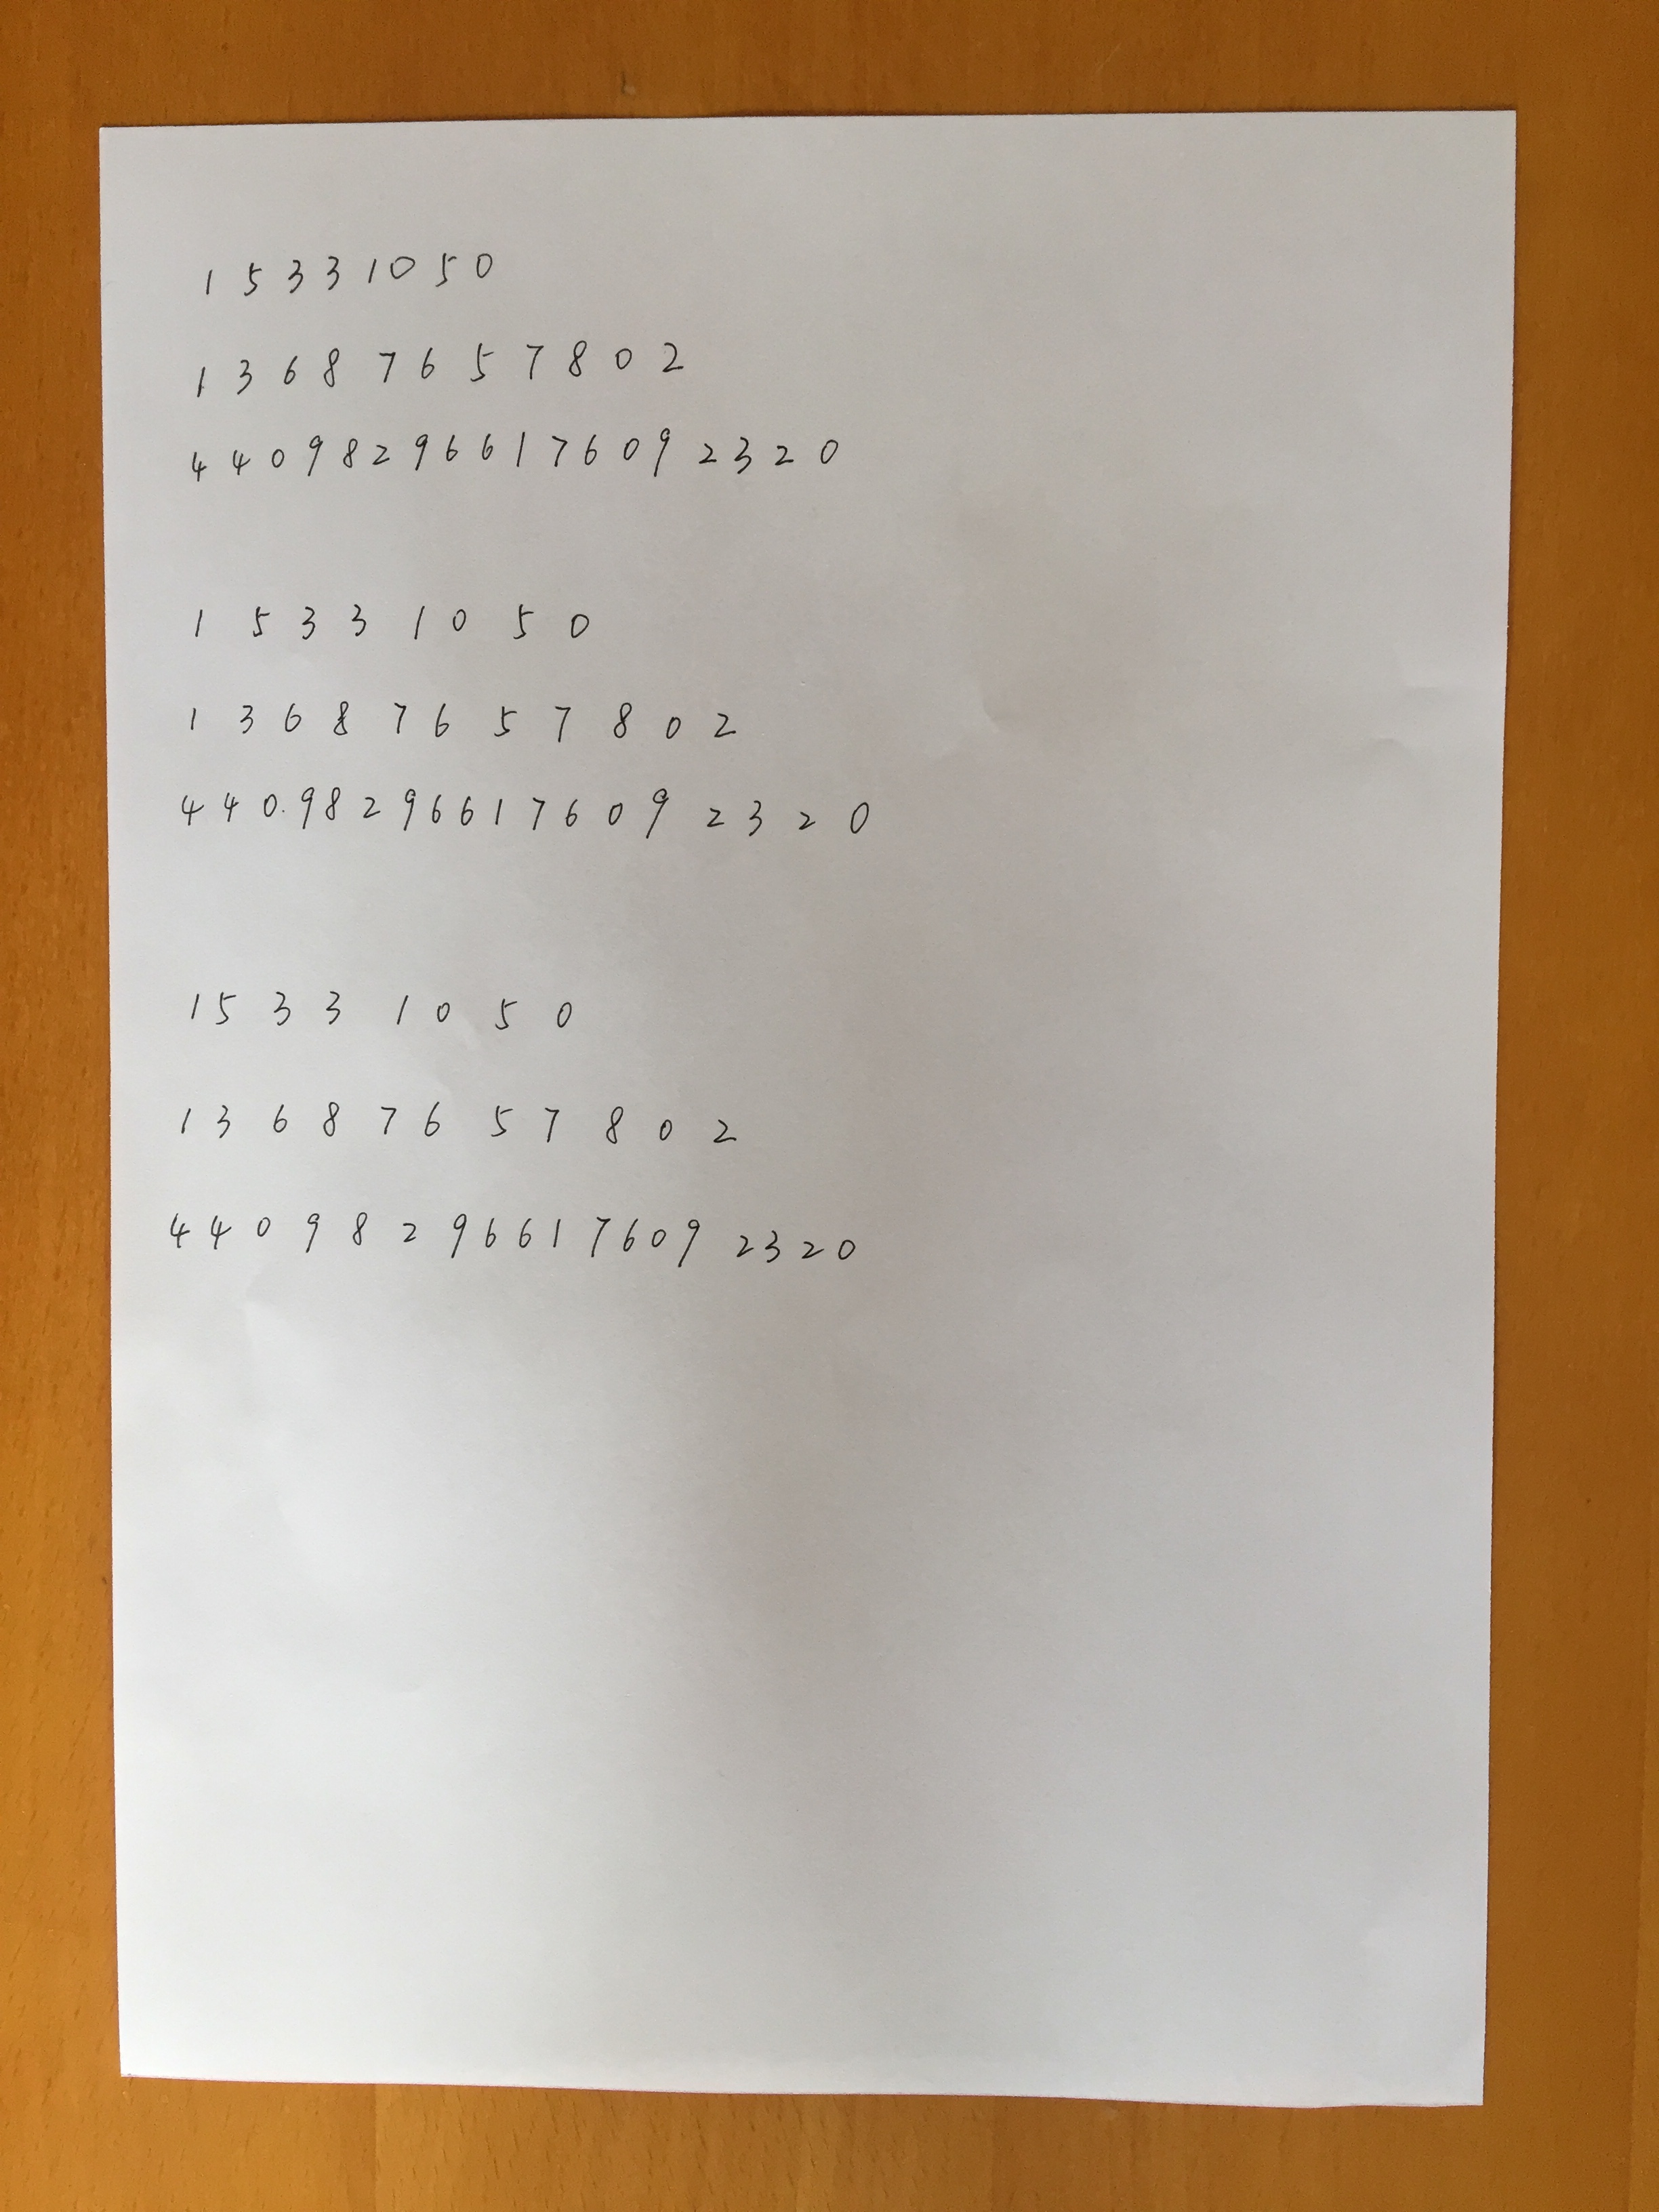 1 5 3 3 1 0 5 0
1 3 6 8 7 6 5 7 8 0 2
4 4 0 9 8 2 9 6 6 1 7 6 0 9 2 3 2 0
1 5 3 3 1 0 5 0
1 3 6 8 7 6 5 7 8 0 2
4 4 0. 9 8 2 9 6 6 1 7 6 0 9 2 3 2 0
1 5 3 3 1 0 5 0
1 3 6 8 7 6 5 7 8 0 2
4 4 0 9 8 2 9 6 6 1 7 6 0 9 2 3 2 0